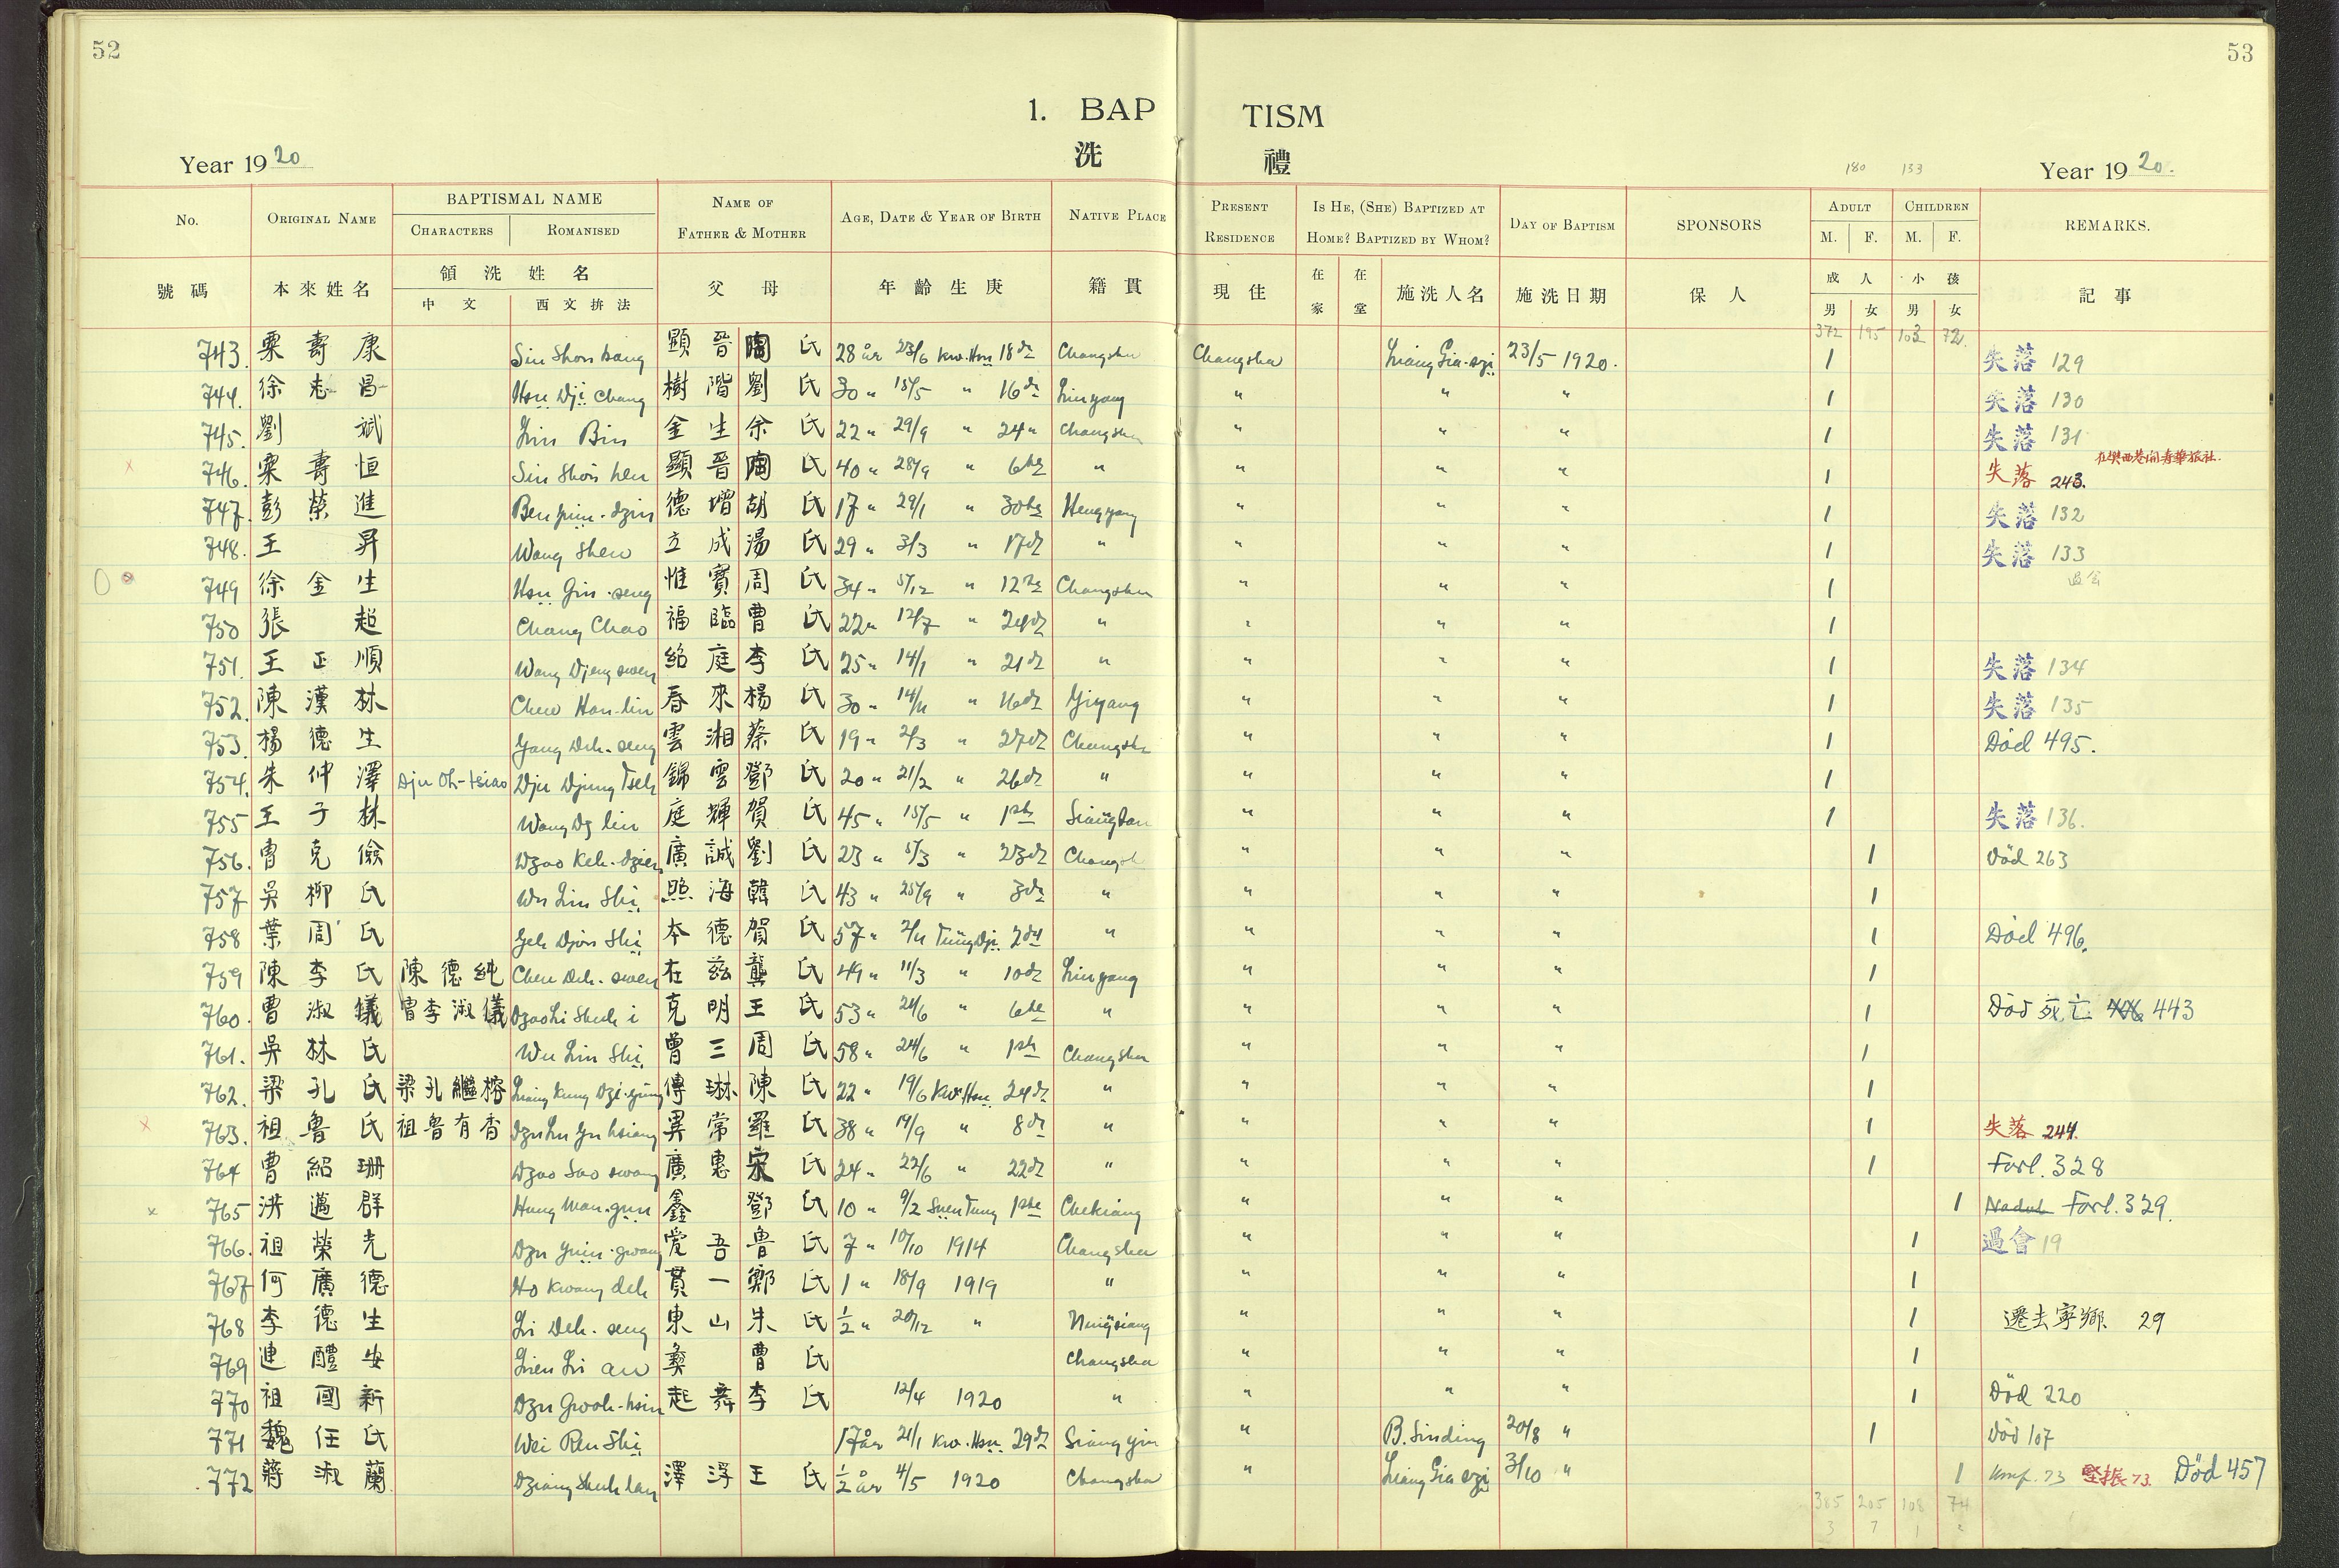 52
53
1. BAP TISM
洗 禮
Year 19 20
180 133
Year 19 20.
No. ORIGINAL NAME BAPTISMAL NAME CHARACTERS ROMANISED NAME OF FATHER & MOTHER AGE, DATE & YEAR OF BIRTH NATIVE PLACE PRESENT RESIDENCE IS HE, (SHE) BAPTIZED AT HOME? BAPTIZED BY WHOM? DAY OF BAPTISM SPONSORS ADULT M. F. CHILDREN M. F. REMARKS.
號碼 本來姓名 領洗姓名 中文 西文拚法 父母 年齡生庚 籍貫 現住 在家 在堂 施洗人名 施洗日期 保人 成人 男 女 小孩 男 女 記事
372 195 103 72
743. 栗壽康 Siu Shou kang 顯晉 陶氏 28 år 23/6 Kw. Hsu 18de Changsha Changsha Liang Gia-dzi 23/5 1920. 1 失落 129
744. 徐志昌 Hsu Dji Chang 樹階 劉氏 30 " 15/5 " 16de Liuyang " " " 1 失落 130
745. 劉斌 Liu Bin 金生 余氏 22 " 29/9 " 24 " Changsha " " " 1 失落 131
746. 栗壽恒 Siu Shou hen 顯晉 陶氏 40 " 28/9 " 6te " " " " 1 失落 243.
747. 彭榮進 Ben Yuin-dzin 德增 胡氏 17 " 29/1 " 30te Hengyang " " " 1 失落 132
748. 王昇 Wang Shen 立成 湯氏 29 " 3/3 " 17de " " " " 1 失落 133
749 徐金生 Hsu Gin-seng 惟寶 周氏 34 " 5/12 " 12te Changsha " " " 1 過會
750 張超 Chang Chao 福臨 曹氏 22 " 12/7 " 24de " " " " 1
751. 王正順 Wang Djeng swen 紹庭 李氏 25 " 14/1 " 21de " " " " 1 失落 134
752. 陳漢林 Chen Han-lin 春來 楊氏 30 " 14/11 " 16de Yiyang " " " 1 失落 135
753. 楊德生 Yang Deh-seng 雲湘 蔡氏 19 " 2/3 " 27de Changsha " " " 1 Död 495.
754. 朱仲澤 Dju Oh-tsiao Dju Djung Tseh 錦雲 鄧氏 20 " 21/2 " 26de " " " " 1
755 王子林 Wang Dz lin 庭輝 賀氏 45 " 15/5 " 1ste Siangtan " " " 1 失落 136.
756. 曹克儉 Dzao Keh-dzien 廣誠 劉氏 23 " 5/3 " 23de Changsh " " " 1 Död 263
757 吳柳氏 Wu Liu Shi 照海 韓氏 43 " 25/9 " 3de " " " " 1
758 葉周氏 Yeh Djou Shi 本德 賀氏 57 " 2/11 Tung Dji 2de " " " " 1 Död 496.
759 陳李氏 陳德純 Chen Deh-swen 在茲 龔氏 49 " 11/3 " 10de Liuyang " " " 1
760. 曹淑儀 曹李淑儀 Dzao Li Shuh i 克明 王氏 53 " 24/6 " 6te " " " " 1 Död 死亡 443
761. 吳林氏 Wu Lin Shi 曾三 周氏 58 " 24/6 " 1ste Changsha " " " 1
762. 梁孔氏 梁孔繼榕 Liang Kung Dzi-yung 傳琳 陳氏 22 " 19/6 Kw. Hsu 24de " " " " 1
763. 祖魯氏 祖魯有香 Dzu Lu Yu hsiang 異常 羅氏 38 " 19/9 " 8de " " " " 1 失落 244.
764 曹紹珊 Dzao Sao swang 廣惠 宋氏 24 " 22/6 " 22de " " " " 1 Forl. 328
765 洪邁群 Hung Man-gun 鑫 鄧氏 10 " 9/2 Suen Tung 1ste Chekiang " " " 1 Forl. 329.
766. 祖榮光 Dzu Yuin-gwang 愛吾 魯氏 7 " 10/10 1914 Changsha " " " 1 過會 19
767 何廣德 Ho Kwang deh 貫一 鄭氏 1 " 18/9 1919 " " " " 1
768 李德生 Li Deh-seng 東山 朱氏 1/2 " 20/12 " Ningsiang " " " 1 遷去寧鄉 29
769 連醴安 Lien Li an 彝 曹氏 Changsha " " " 1
770 祖國新 Dzu Gwoh-hsin 起舞 李氏 12/4 1920 " " " " 1 Död 220
771 魏任氏 Wei Ren Shi 17 år 21/1 Kw. Hsu 29de Siang yin " B. Sinding 20/8 " 1 Död 107
772 蔣淑蘭 Dziang Shuh lan 澤浮 王氏 1/2 år 4/5 1920 Changsha " Liang Gia dzi 3/10 " 1 Konf. 73 堅振 73. Död 457
385 205 108 74
3 7 1 2